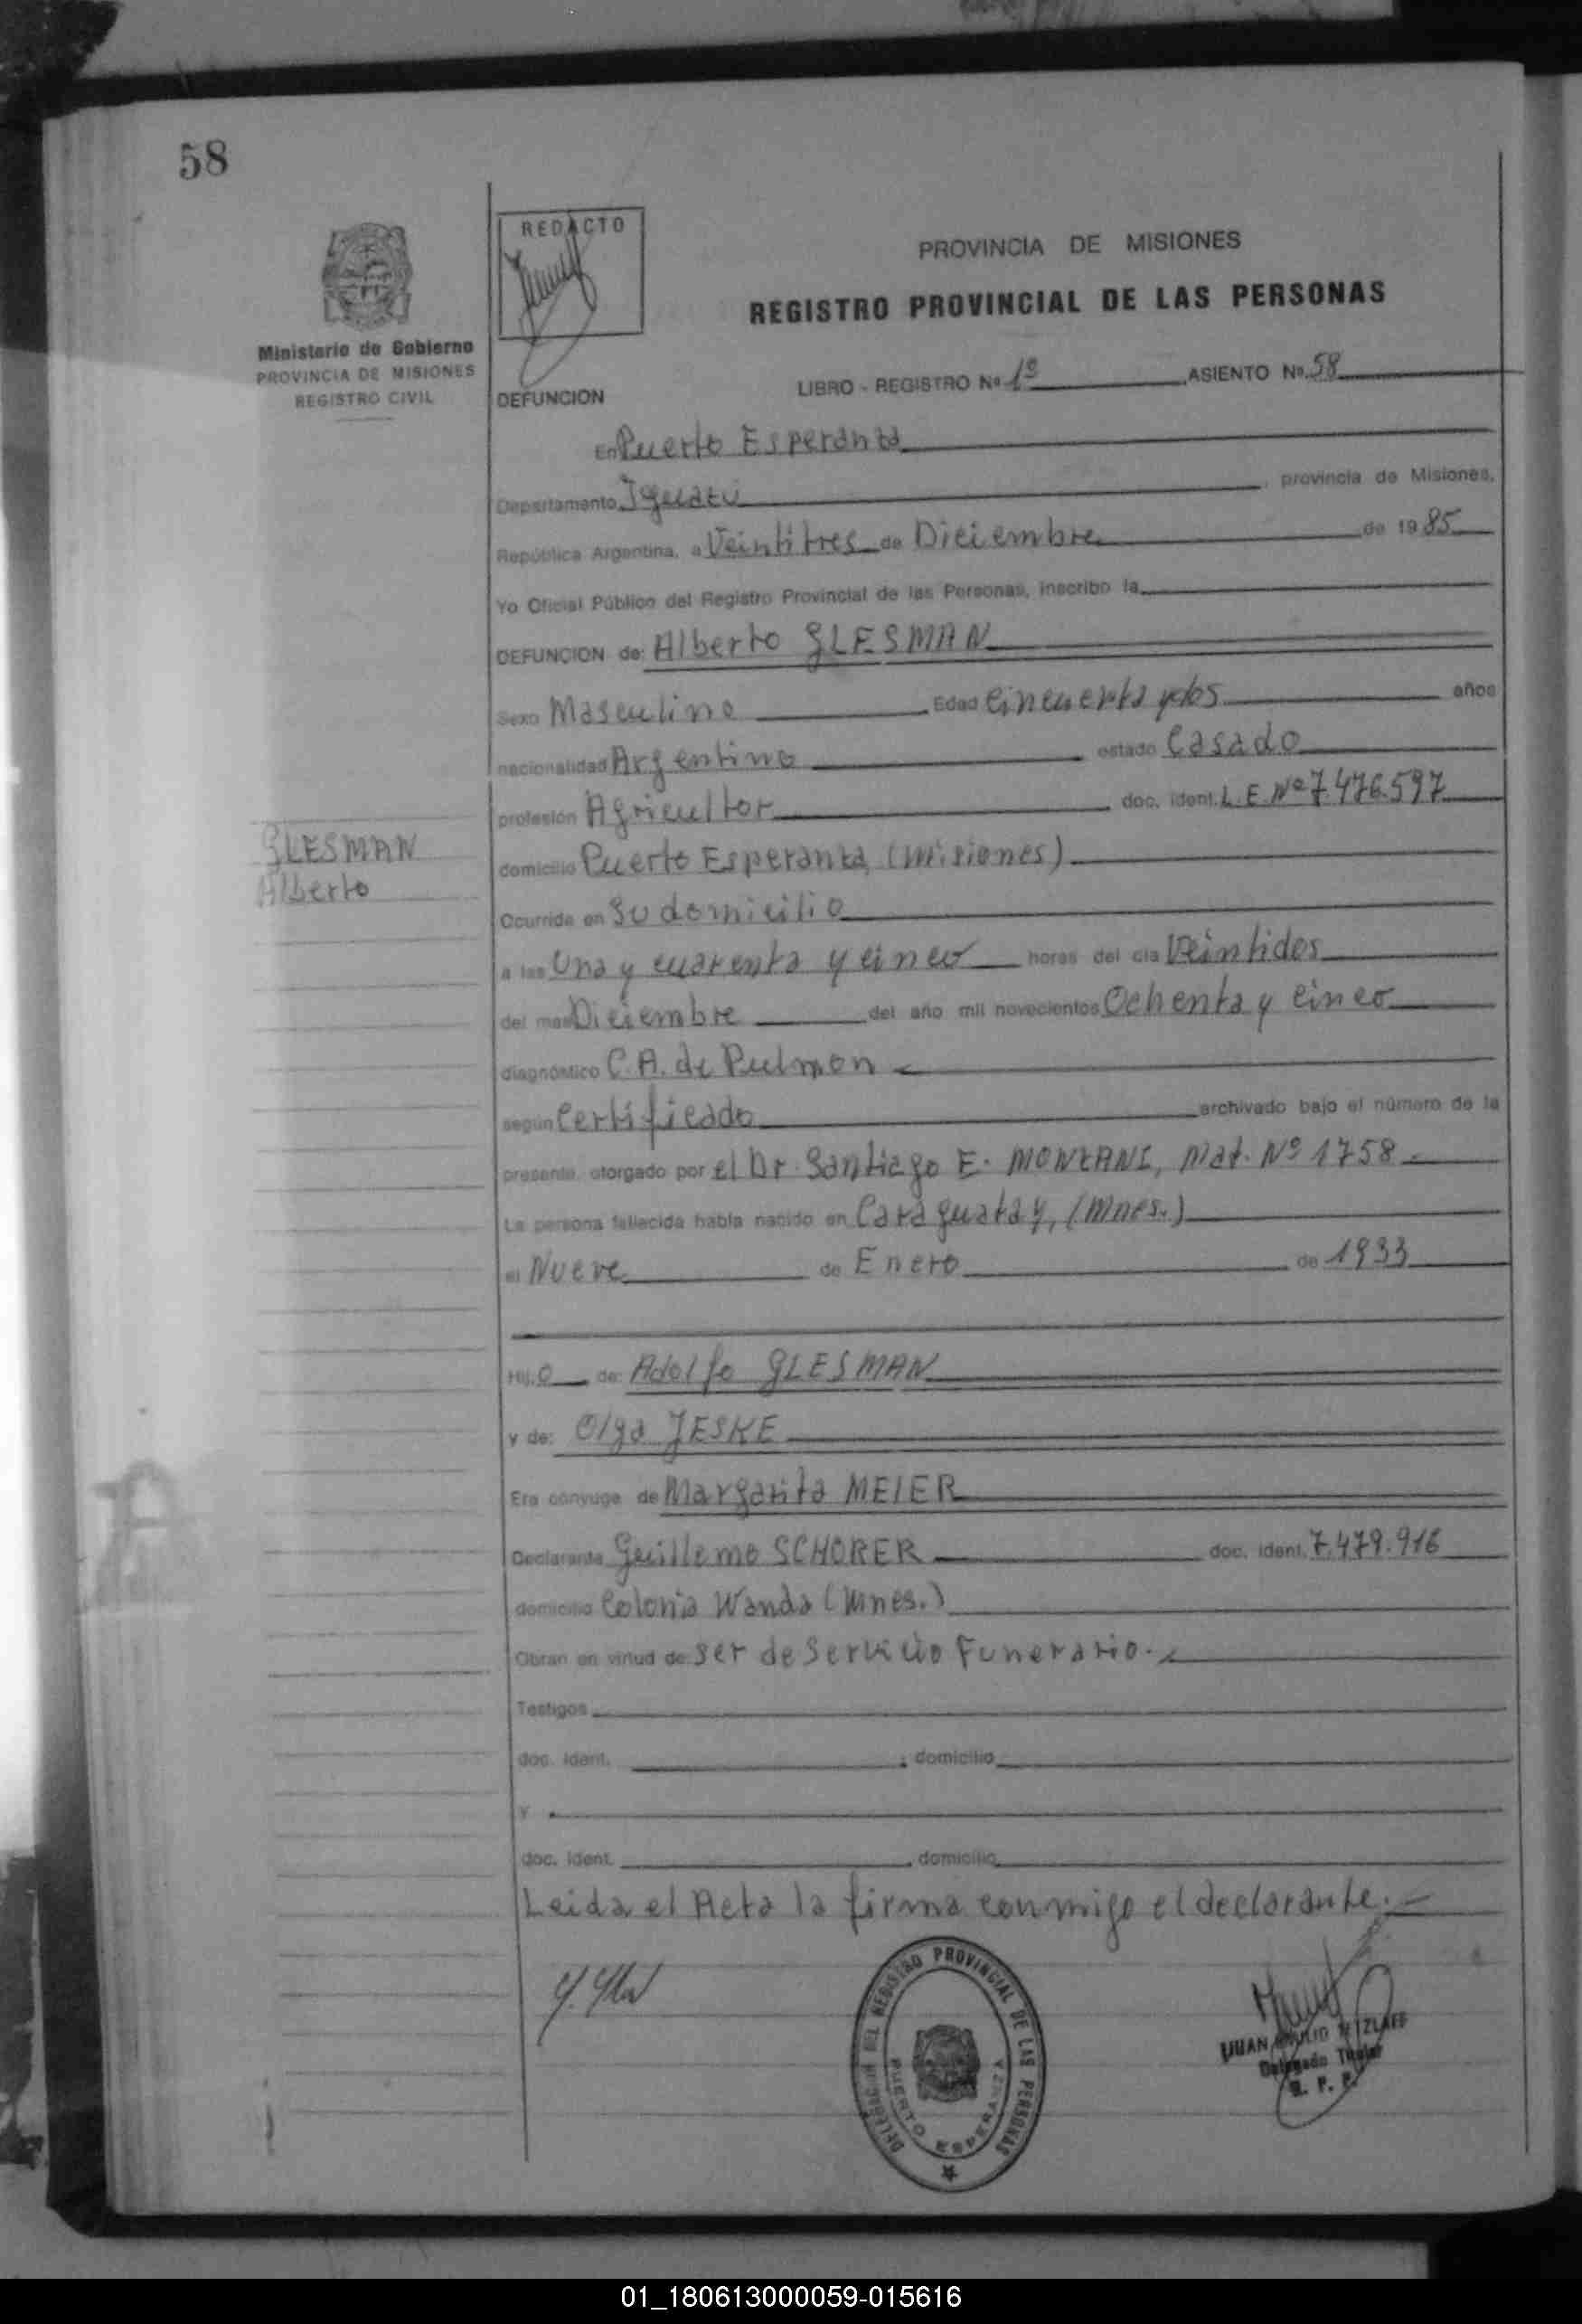 58
REDACTO
PROVINCIA DE MISIONES
REGISTRO PROVINCIAL DE LAS PERSONAS
Ministerio de Gobierno
PROVINCIA DE MISIONES
REGISTRO CIVIL
LIBRO - REGISTRO Nº 1º ASIENTO Nº 58
DEFUNCION
En Puerto Esperanza
Departamento Iguazú, provincia de Misiones,
República Argentina, a Veintitres de Diciembre de 1985
Yo Oficial Público del Registro Provincial de las Personas, inscribo la
DEFUNCION de: Alberto GLESMAN
Sexo Masculino Edad Cincuenta y dos años
nacionalidad Argentino estado Casado
profesión Agricultor doc. ident. L.E. Nº 7.476.597
GLESMAN
Alberto
domicilio Puerto Esperanza, (Misiones)
Ocurrida en Su domicilio
a las Una y cuarenta y cinco horas del día Veintidos
del mes Diciembre del año mil novecientos Ochenta y cinco
diagnóstico C.A. de Pulmon
según Certificado archivado bajo el número de la
presente, otorgado por el Dr. Santiago E. MONZANI, Mat. Nº 1758.
La persona fallecida había nacido en Caraguatay, (Mnes.)
el Nueve de Enero de 1933
Hijo de: Adolfo GLESMAN
y de: Olga JESKE
Era cónyuge de Margarita MEIER
Declarante Guillemo SCHORER doc. ident. 7.479.916
domicilio Colonia Wanda (Mnes.)
Obran en virtud de ser de Servicio Funerario.
Testigos
doc. ident. ; domicilio
y
doc. ident. , domicilio
Leida el Acta la firma conmigo el declarante.
DELEGACION DEL REGISTRO PROVINCIAL DE LAS PERSONAS
PUERTO ESPERANZA
JUAN
Delegado Titular
R. P. P.
01_180613000059-015616